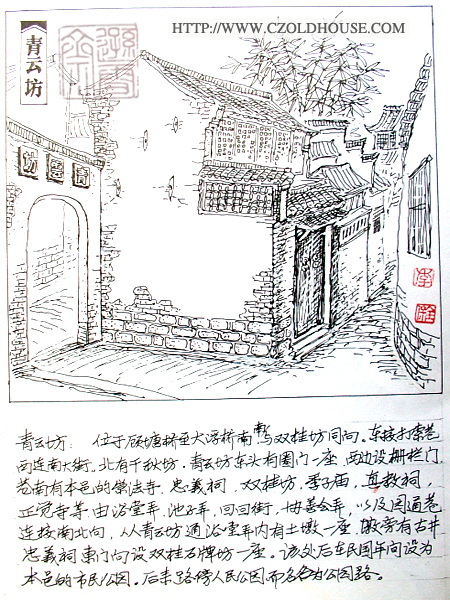 HTTP://WWW.CZOLDHOUSE.COM
青云坊
青雲坊
青云坊： 位于顾塘桥至大浮桥南与双桂坊同向。东接打索巷
西连南大街。北有千秋坊，青云坊东头有圈门一座，西边设栅栏门
巷南有本邑的崇法寺，忠義祠，双桂坊，季子庙，真教祠，
正觉寺等由浴堂弄，池子弄，回回街，协善会弄，以及因通巷
连接南北向，从青云坊通浴堂弄内有土墩一座，墩旁有古井
忠義祠東门向设双桂石牌坊一座。该处后在民国年间设为
本邑的市民公园。后来路傍人民公园而名名为公园路。